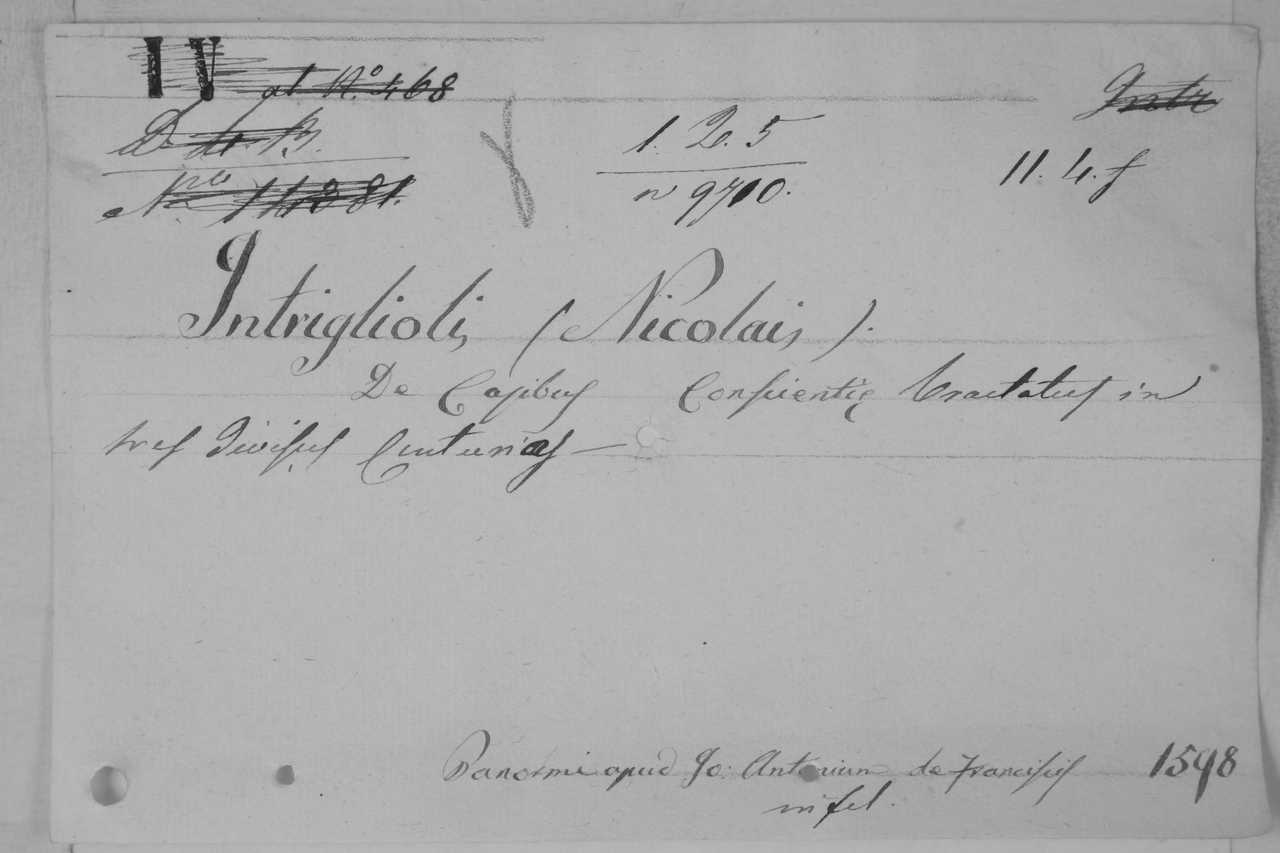 IV
al N.º 468
D de B.
Nº 11881.
1. 2. 5
n 9710.
Intr
11. 4. f
Intriglioli, (Nicolai, ).
De Casibus Conscientię tractatus in
tres divisus Centurias —
Panormi apud Jo: Antonium de Franciscis 1598
in fol.